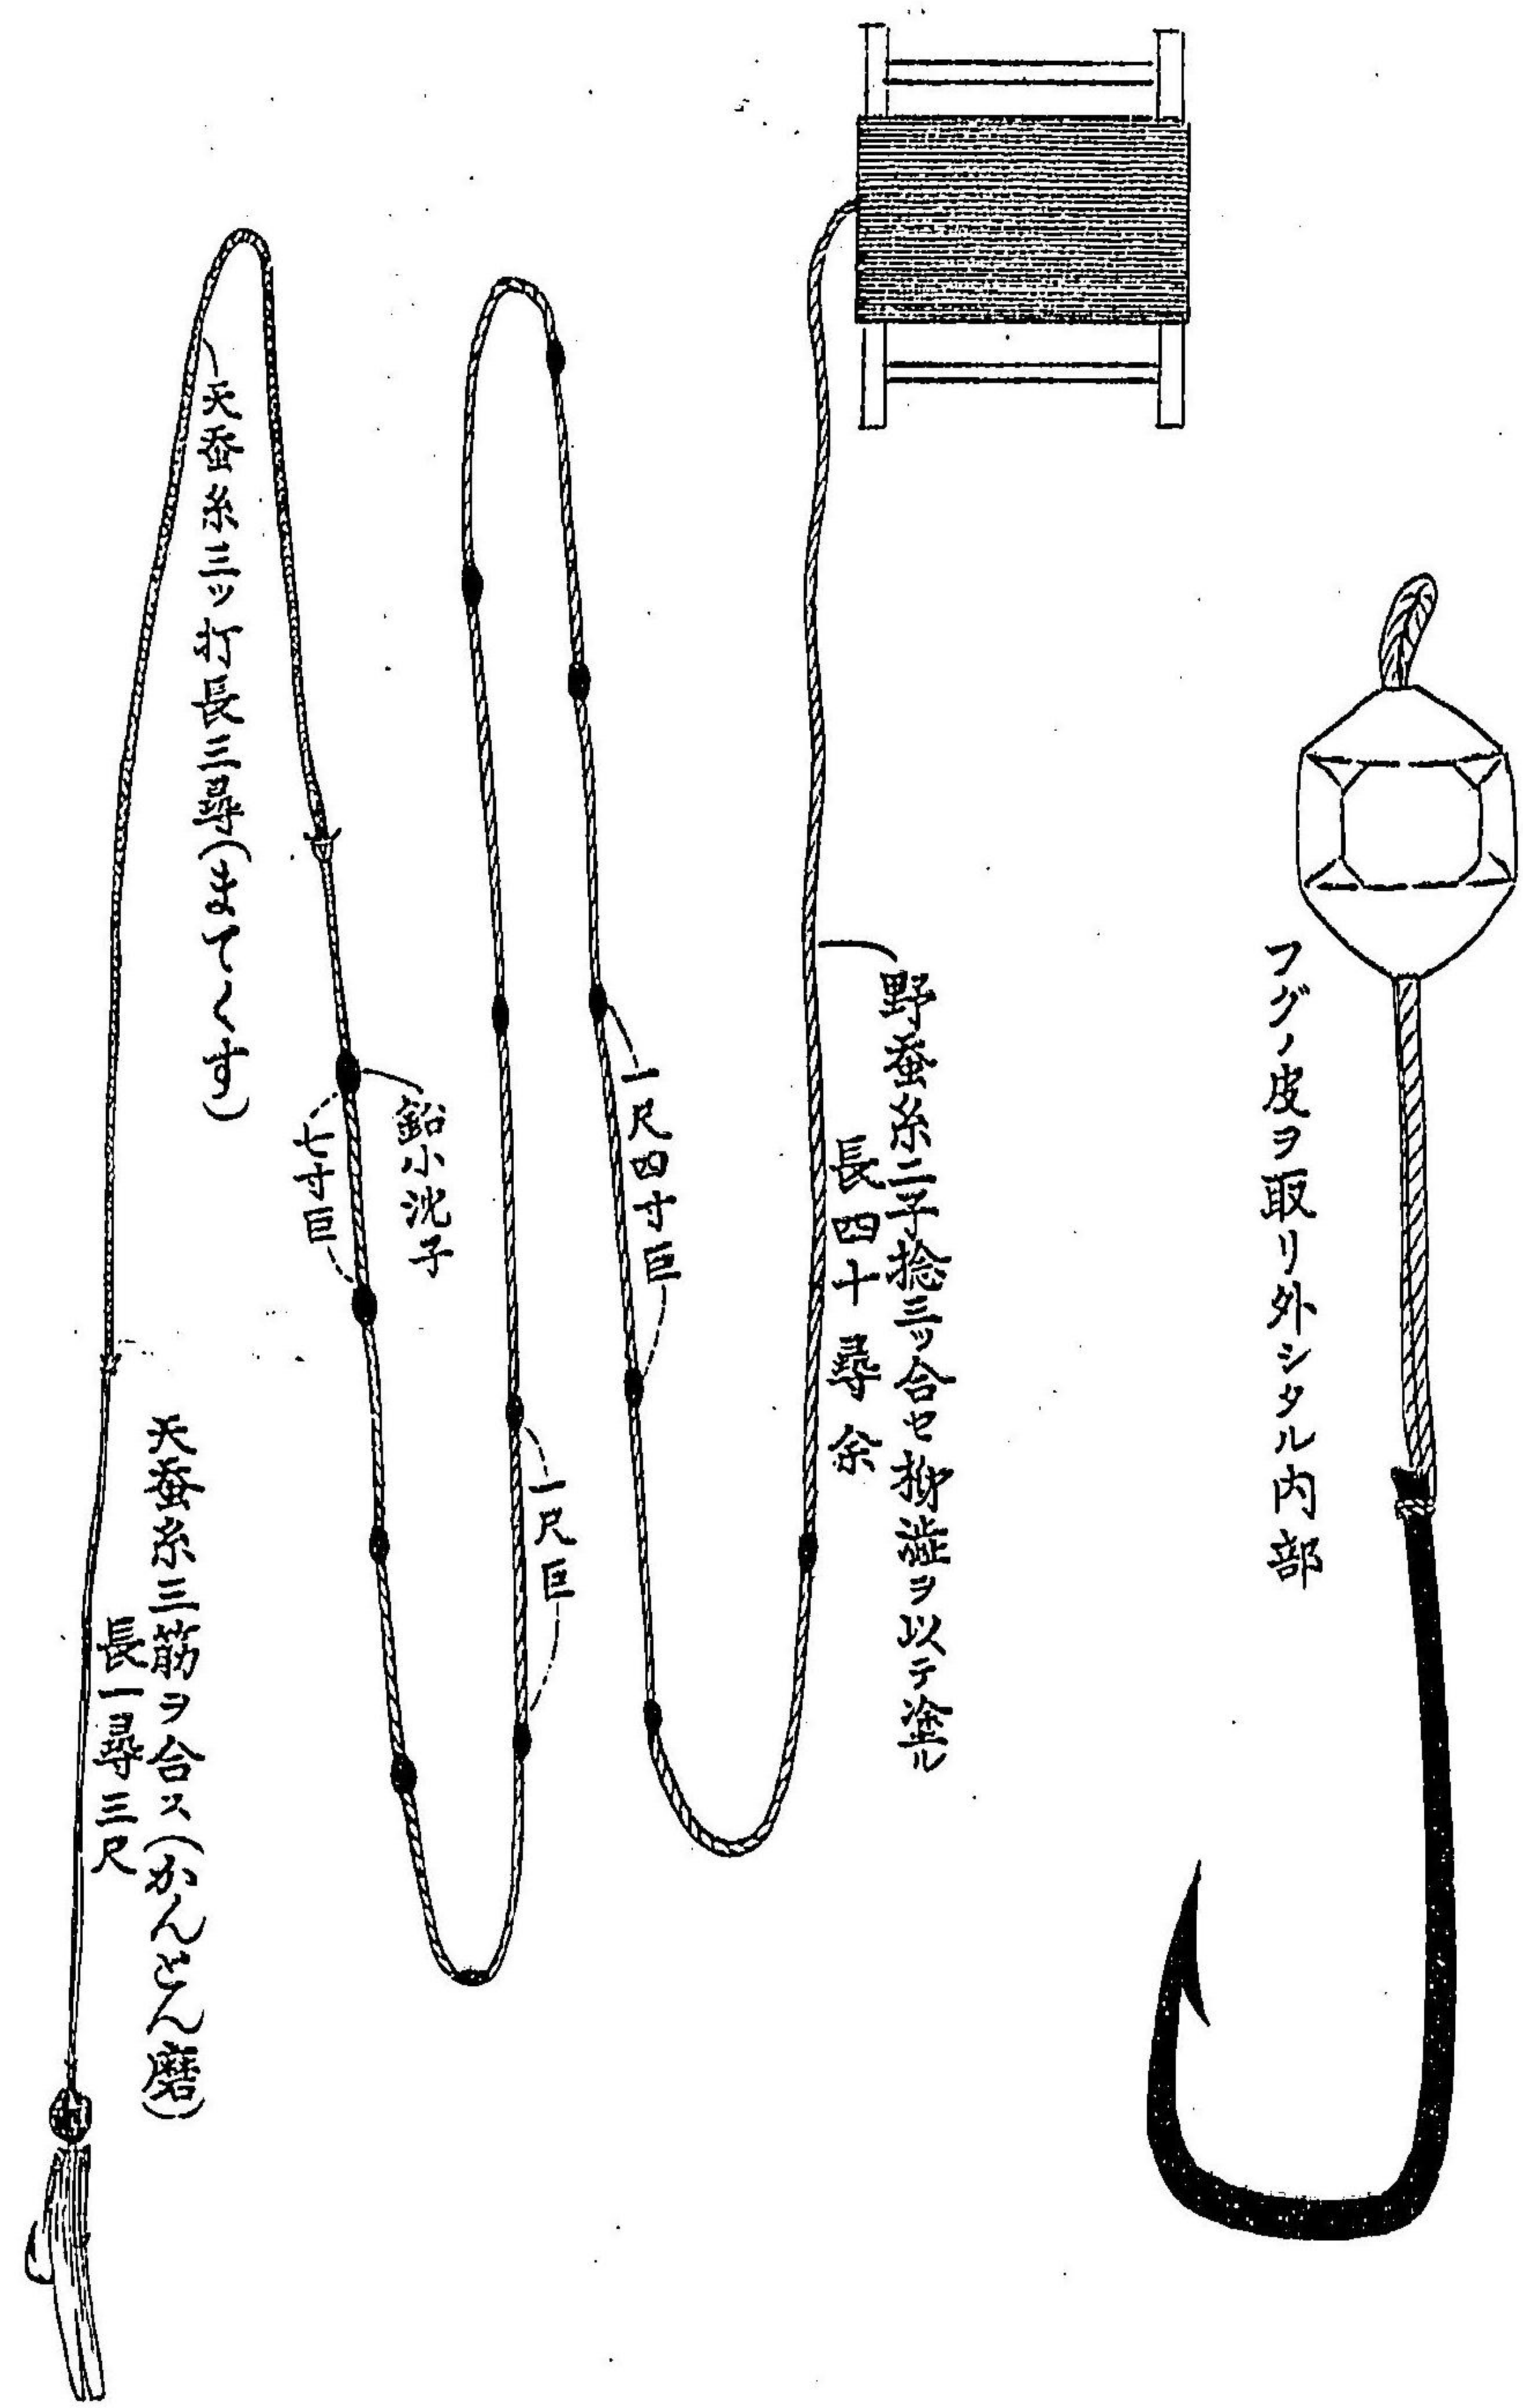 フグノ皮ヲ取リ外シタル内部
野蚕糸二子捻三ツ合セ柳澁ヲ以テ塗ル
長四十尋余
一尺四寸目
一尺目
鉛小沈子
七寸目
天蚕糸三ツ打長三尋(まてくす)
天蚕糸三筋ヲ合ス(かんせん磨)
長一尋三尺